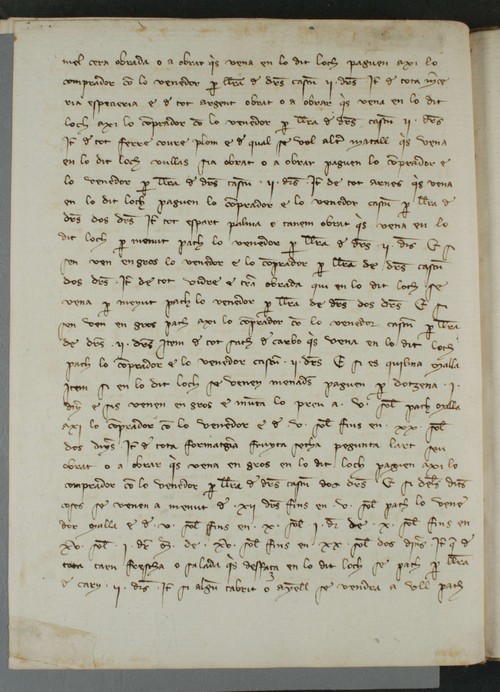 mel cera obrada o a obrar q̄s vena en lo dit loch paguen axi lo
comprador cō lo venedor ꝑ ll̄ra d̄ drs̄ casꝯ ii drs̄ Jt̄ d̄ tota m̄ce
ria especieria e d̄ tot argent obrat o a obrar q̄s vena en lo dit
loch axi lo cōprador cō lo venedor ꝑ ll̄ra d̄ drs̄ casꝯ ii drs̄
Jt̄ d̄ tot ferre coure plom e d̄ qual se vol alt̄ matall q̄s vena
en lo dit loch vullas sia obrat o a obrar paguen lo cōprador e
lo venedor ꝑ ll̄ra d̄ drs̄ casꝯ · ii · drs̄ Jt̄ de tot arnes q̄s vena
en lo dit loch paguen lo cōprador e lo venedor casꝯ ꝑ ll̄ra d̄
drs̄ dos drs̄ Jt̄ tot espart palma e canem obrat q̄s vena en lo
dit loch ꝑ menut pach lo venedor ꝑ ll̄ra d̄ drs̄ · ii · drs̄ E si
sen ven en gros lo venedor e lo cōprador ꝑ ll̄ra de drs̄ casꝯ
dos drs̄ · Jt̄ de tot vidre e t̄ra obrada qui en lo dit loch se
vena ꝑ menut pach lo venedor ꝑ ll̄ra de drs̄ dos drs̄ E si
sen ven en gros pach axi lo cōprador cō lo venedor casꝯ ꝑ ll̄ra
de drs̄ · ii · drs̄ Jtem d̄ tot sach d̄ carbo q̄s vena en lo dit loch
pach lo cōprador e lo venedor casꝯ · ii · drs̄ E si es malla
Jtem si en lo dit loch se venen paguen ꝑ dotzena · i ·
dr̄ e sis venen en gros e munta lo preu a · v · sol̄ pach malla
axi lo cōprador cō lo venedor e d̄ v · sol̄ fins en · xx · sol̄
dos drs̄ Jt̄ d̄ tota formatgeria fruyta secha pegunta lart seu
obrat o a obrar q̄s vena en gros en lo dit loch paguen axi lo
comprador cō lo venedor ꝑ ll̄ra d̄ drs̄ casꝯ dos drs̄ E si
coses se venen a menut d̄ · xii drs̄ fins en · v · sol̄ pach lo vene
dor malla e d̄ · v · sol̄ fins en · x · sol̄ · i · dr̄ de · x · sol̄ fins en
xv · sol̄ · i · dr̄ de · xv · sol̄ fins en · xx · sol̄ dos drs̄ Jt̄ q̄ d̄
tota carn frescha o salada q̄s desfaça en lo dit loch se pach ꝑ ll̄ra
d̄ carn · ii · drs̄ Jt̄ si algū cabrit o anyell se vendra a ull pach